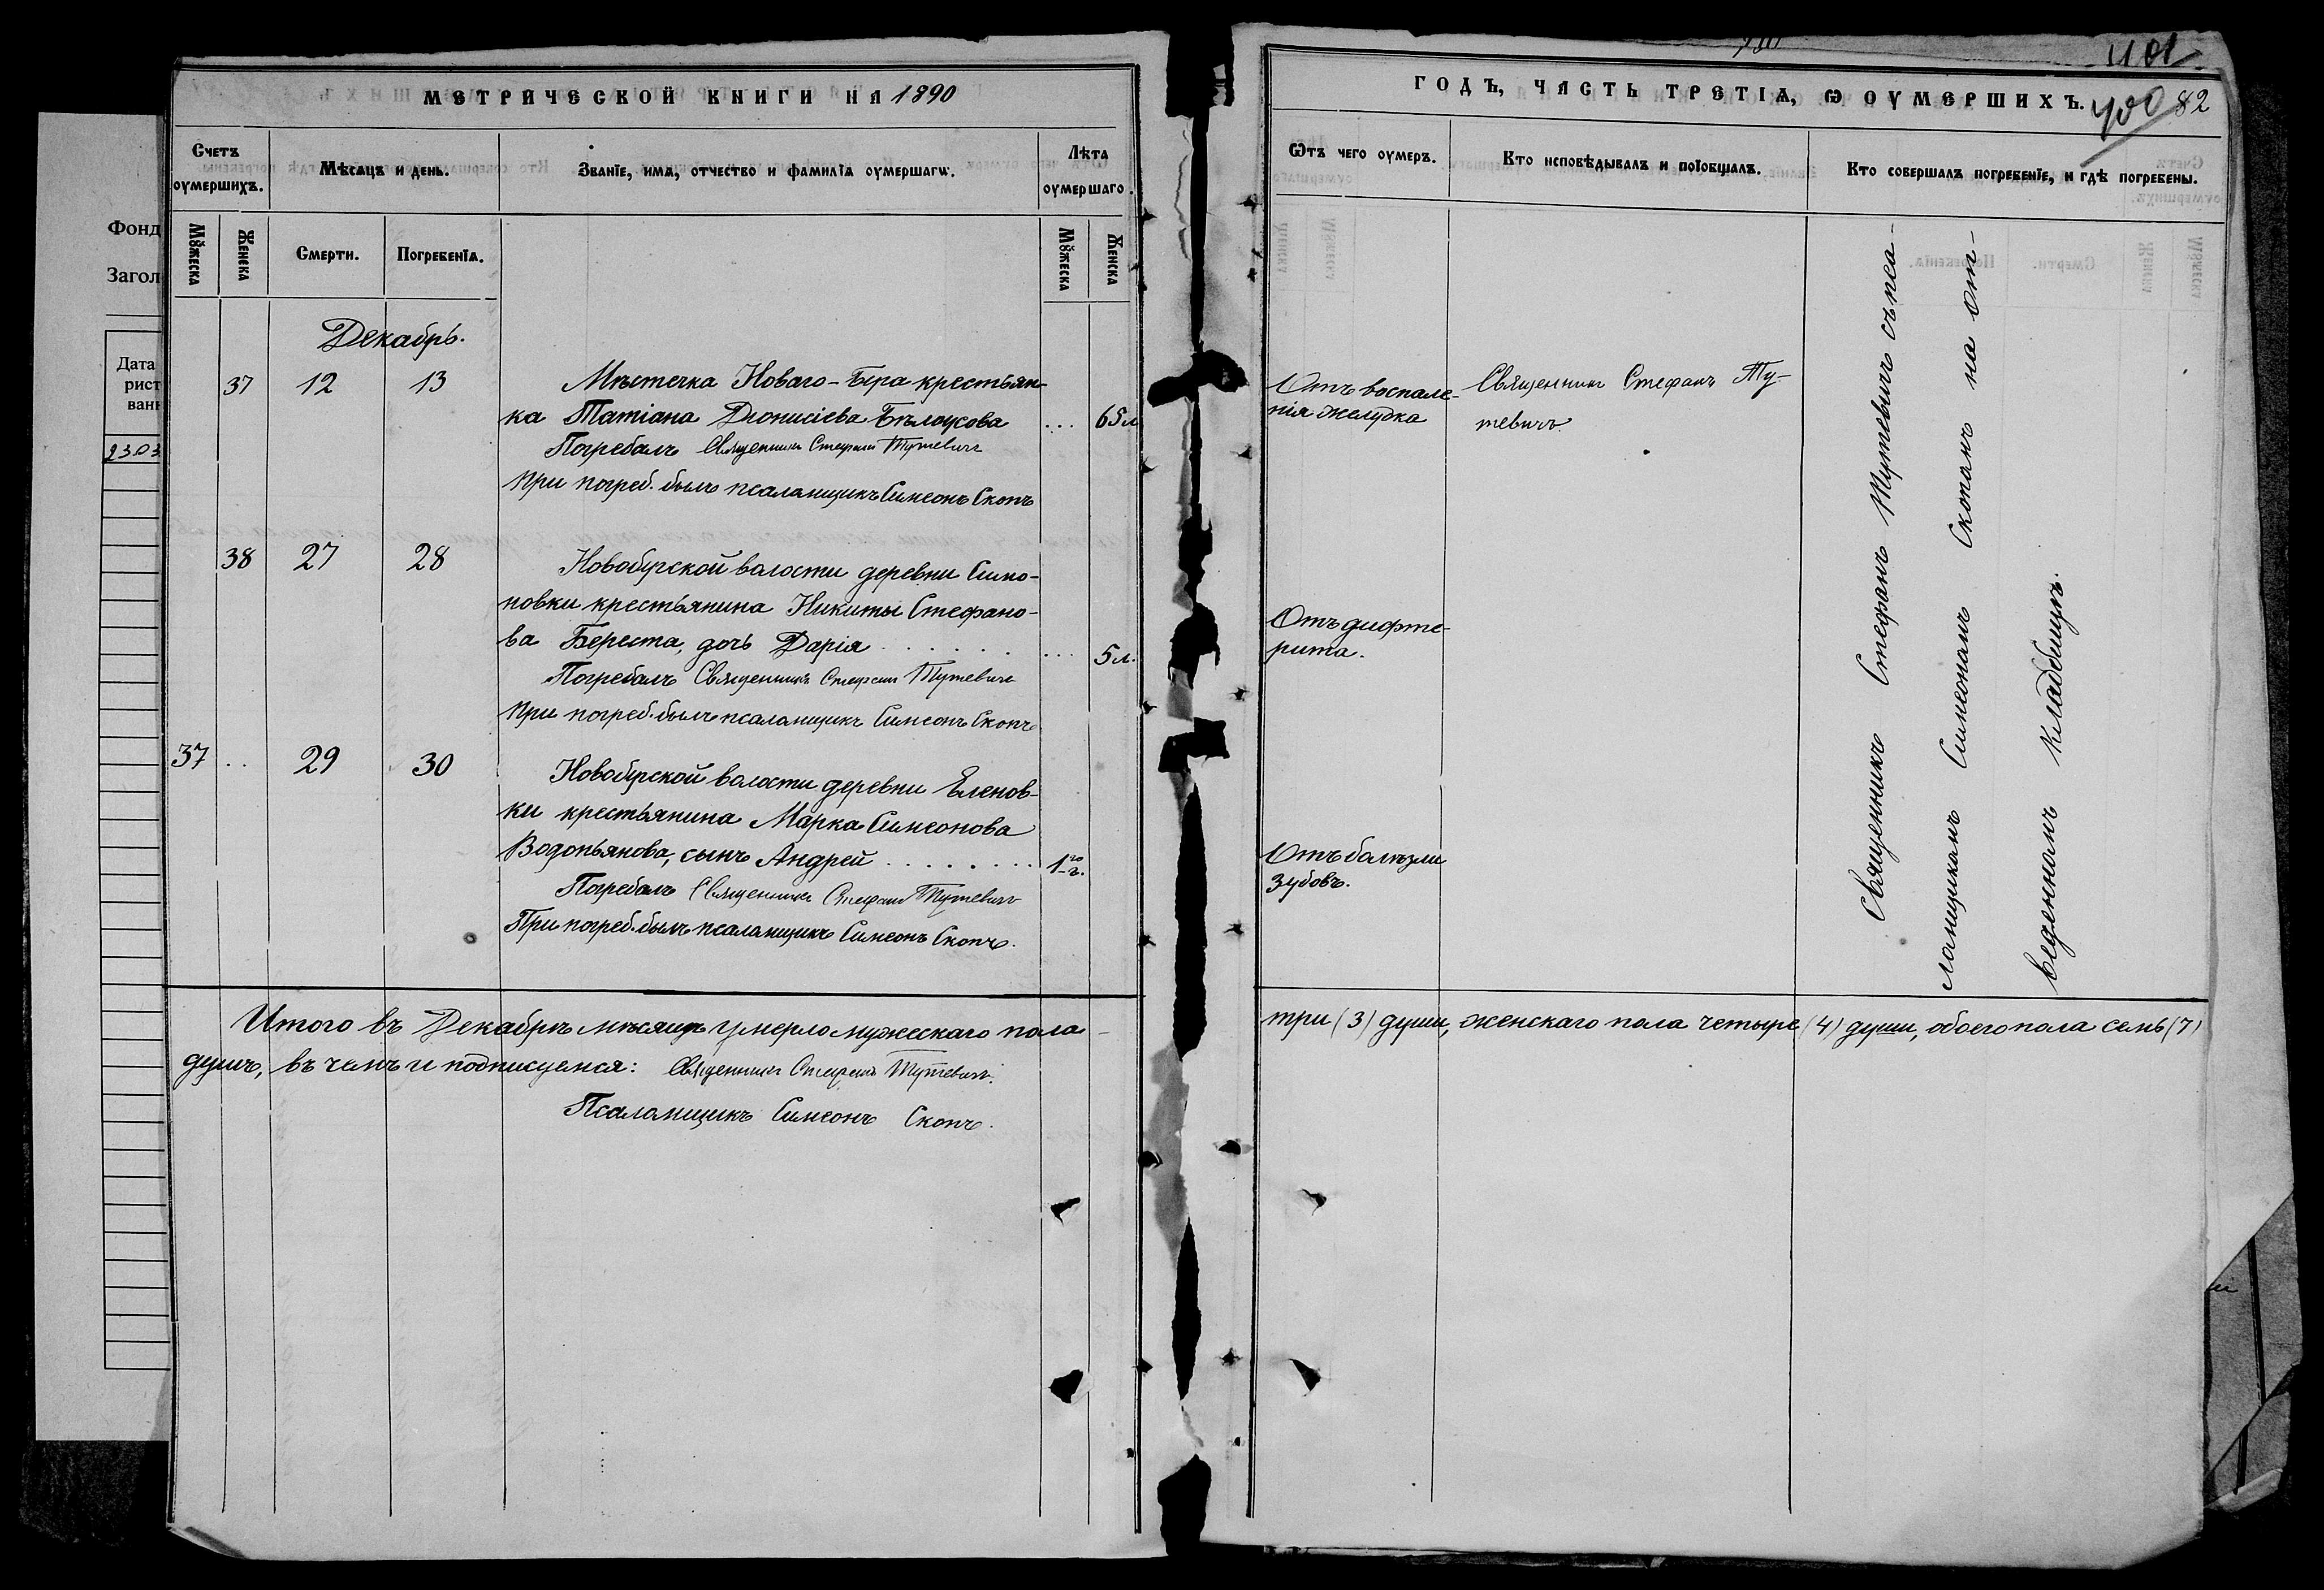 МЕТРИЧЕСКОЙ КНИГИ НА 1890
Счетъ оумершихъ.
Мѣсяцъ и день.
Званїе, имя, отчество и фамилїя оумершагѡ.
Лѣта оумершаго.
Мꙋжеска
Женска
Смерти.
Погребенїя.
Мꙋжеска
Женска
Декабрь.
37 12 13 Мѣстечка Новаго-Буга крестьян-
ка Татіана Діонисіева Бѣлоусова ... 65 л
Погребалъ Священникъ Стефанъ Тутевичъ
При погреб. былъ псаломщикъ Симеонъ Скопъ
38 27 28 Новобугской волости деревни Симо-
новки крестьянина Никиты Стефано-
ва Береста, дочь Дарія ... 5 л.
Погребалъ Священникъ Стефанъ Тутевичъ
При погреб. былъ псаломщикъ Симеонъ Скопъ
37 .. 29 30 Новобугской волости деревни Еленов-
ки крестьянина Марка Симеонова
Водопьянова, сынъ Андрей ... 1 го г.
Погребалъ Священникъ Стефанъ Тутевичъ
При погреб. былъ псаломщикъ Симеонъ Скопъ.
Итого въ Декабрѣ мѣсяцѣ умерло мужескаго пола
душъ, въ чемъ и подписуемся: Священникъ Стефанъ Тутевичъ.
Псаломщикъ Симеонъ Скопъ.
401
ГОДЪ, ЧАСТЬ ТРЕТІЯ, Ѡ ОУМЕРШИХЪ.
400 82
Ѿтъ чего оумеръ.
Кто исповѣдывалъ и прїобщалъ.
Кто совершалъ погребенїе, и гдѣ погребены.
Отъ воспале-
нія желудка
Священникъ Стефанъ Ту-
тевичъ.
Отъ дифте-
рита.
Отъ болѣзни
зубовъ.
Священникъ Стефанъ Тутевичъ съ пса-
ломщикомъ Симеономъ Скопомъ на от-
веденномъ кладбищѣ.
три (3) души, женскаго пола четыре (4) души, обоего пола семь (7)
Фонд
Загол
Дата
рист
ван
23.03